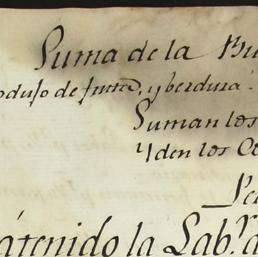 Suma de la
oduso de fruta, y berdura
Suman los
Y den los
átenido la Lab.ʳ